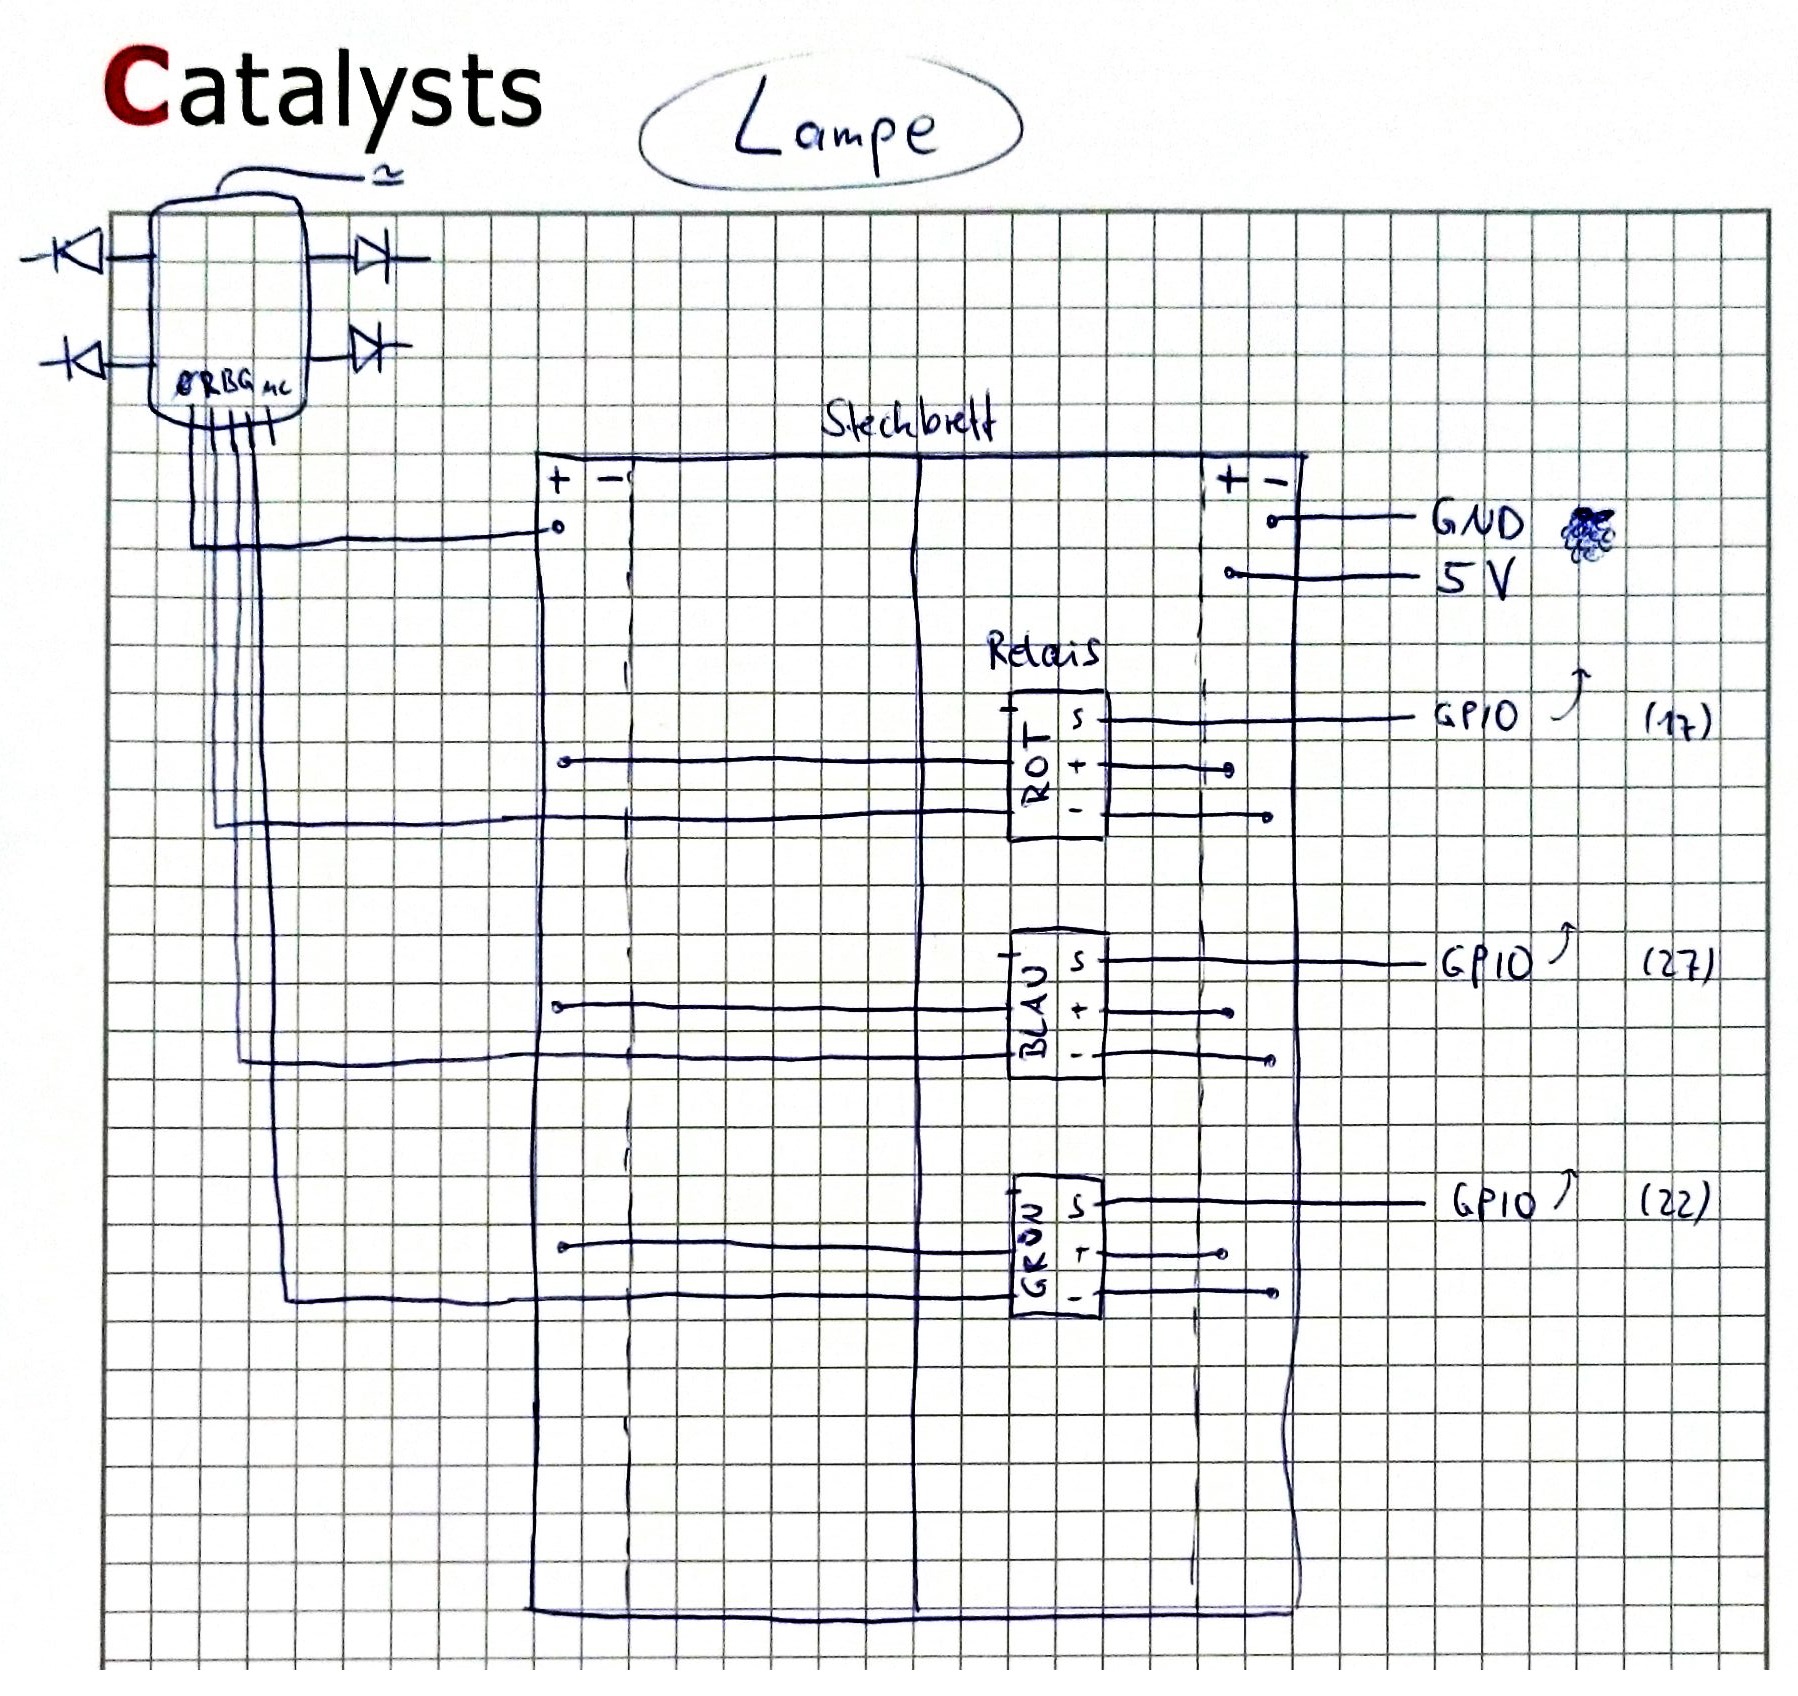 Catalysts
Lampe
≃
R B G nc
Steckbrett
+ - + -
GND
5V
Relais
ROT S + -
GPIO (17)
BLAU S + -
GPIO (27)
GRÜN S + -
GPIO (22)